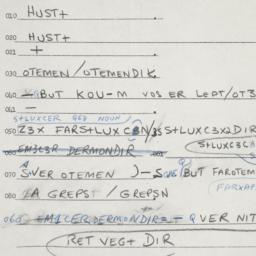 010 HUST+
020 HUST+
021 +
030 OTEMEN / OTEMENDIK
040 BUT KOU-M VOS ER LEPT/OT3
041 -
S+LUXCER GED NOUN/
050 Z3X FARS+LUXC3N/3S S+LUXC3X2DIR
060 EM3C3R DERMONDIR S+LUXC3C
070 SVER OTEMEN )-S BUT FAROTEM
080 /A GREPS+ / GREPSN FARXA
060 EM1CER.DERMONDIR2+ Q VER NIT
RET VEG+ DIR